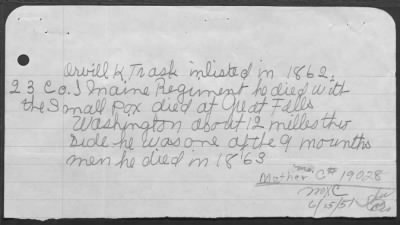 Orvill K Trask inlisted in 1862.
23 Co. I Maine Regiment he died with
the Small Pox died at Great Falls
Washington about 12 milles this
side he was one of the 9 mounths
men he died in 1863
Mother C# 19028
MXC
6/15/51